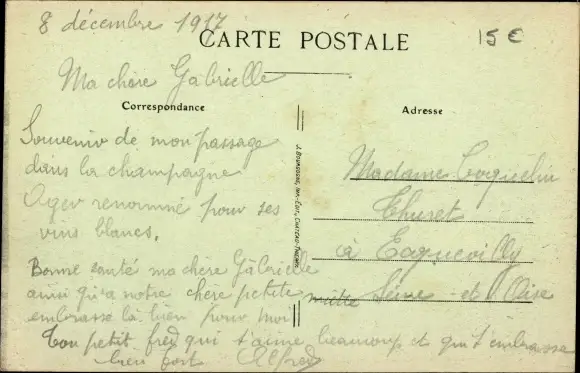 8 décembre 1917
CARTE POSTALE
15 €
Ma chère Gabrielle
Correspondance
Souvenir de mon passage
dans la champagne
renommé pour ses
vins blancs.
Bonne santé ma chère Gabrielle
ainsi qu'a notre chère petite
embrasse la bien pour moi
Ton petit fred qui t'aime beaucoup et qui t'embrasse
bien fort Alfred
J. BOURGOGNE, IMP.-EDIT., CHATEAU-THIERRY
Adresse
Madame Coquelin
Thuret
à Ecquevilly
Seine et Oise